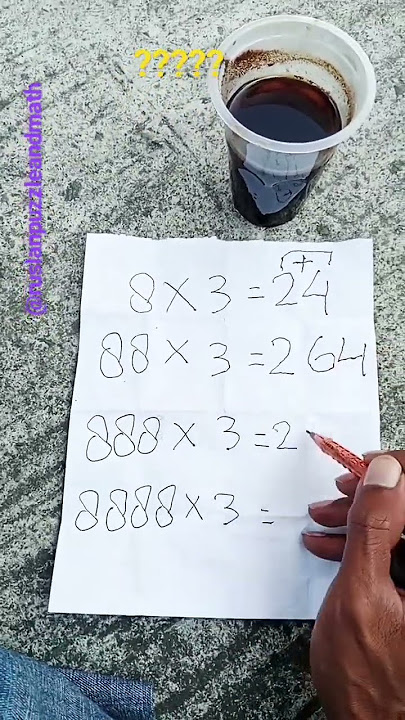 ?????
@ruslanpuzzleandmath
+
8 × 3 = 24
88 × 3 = 264
888 × 3 = 2
8888 × 3 =